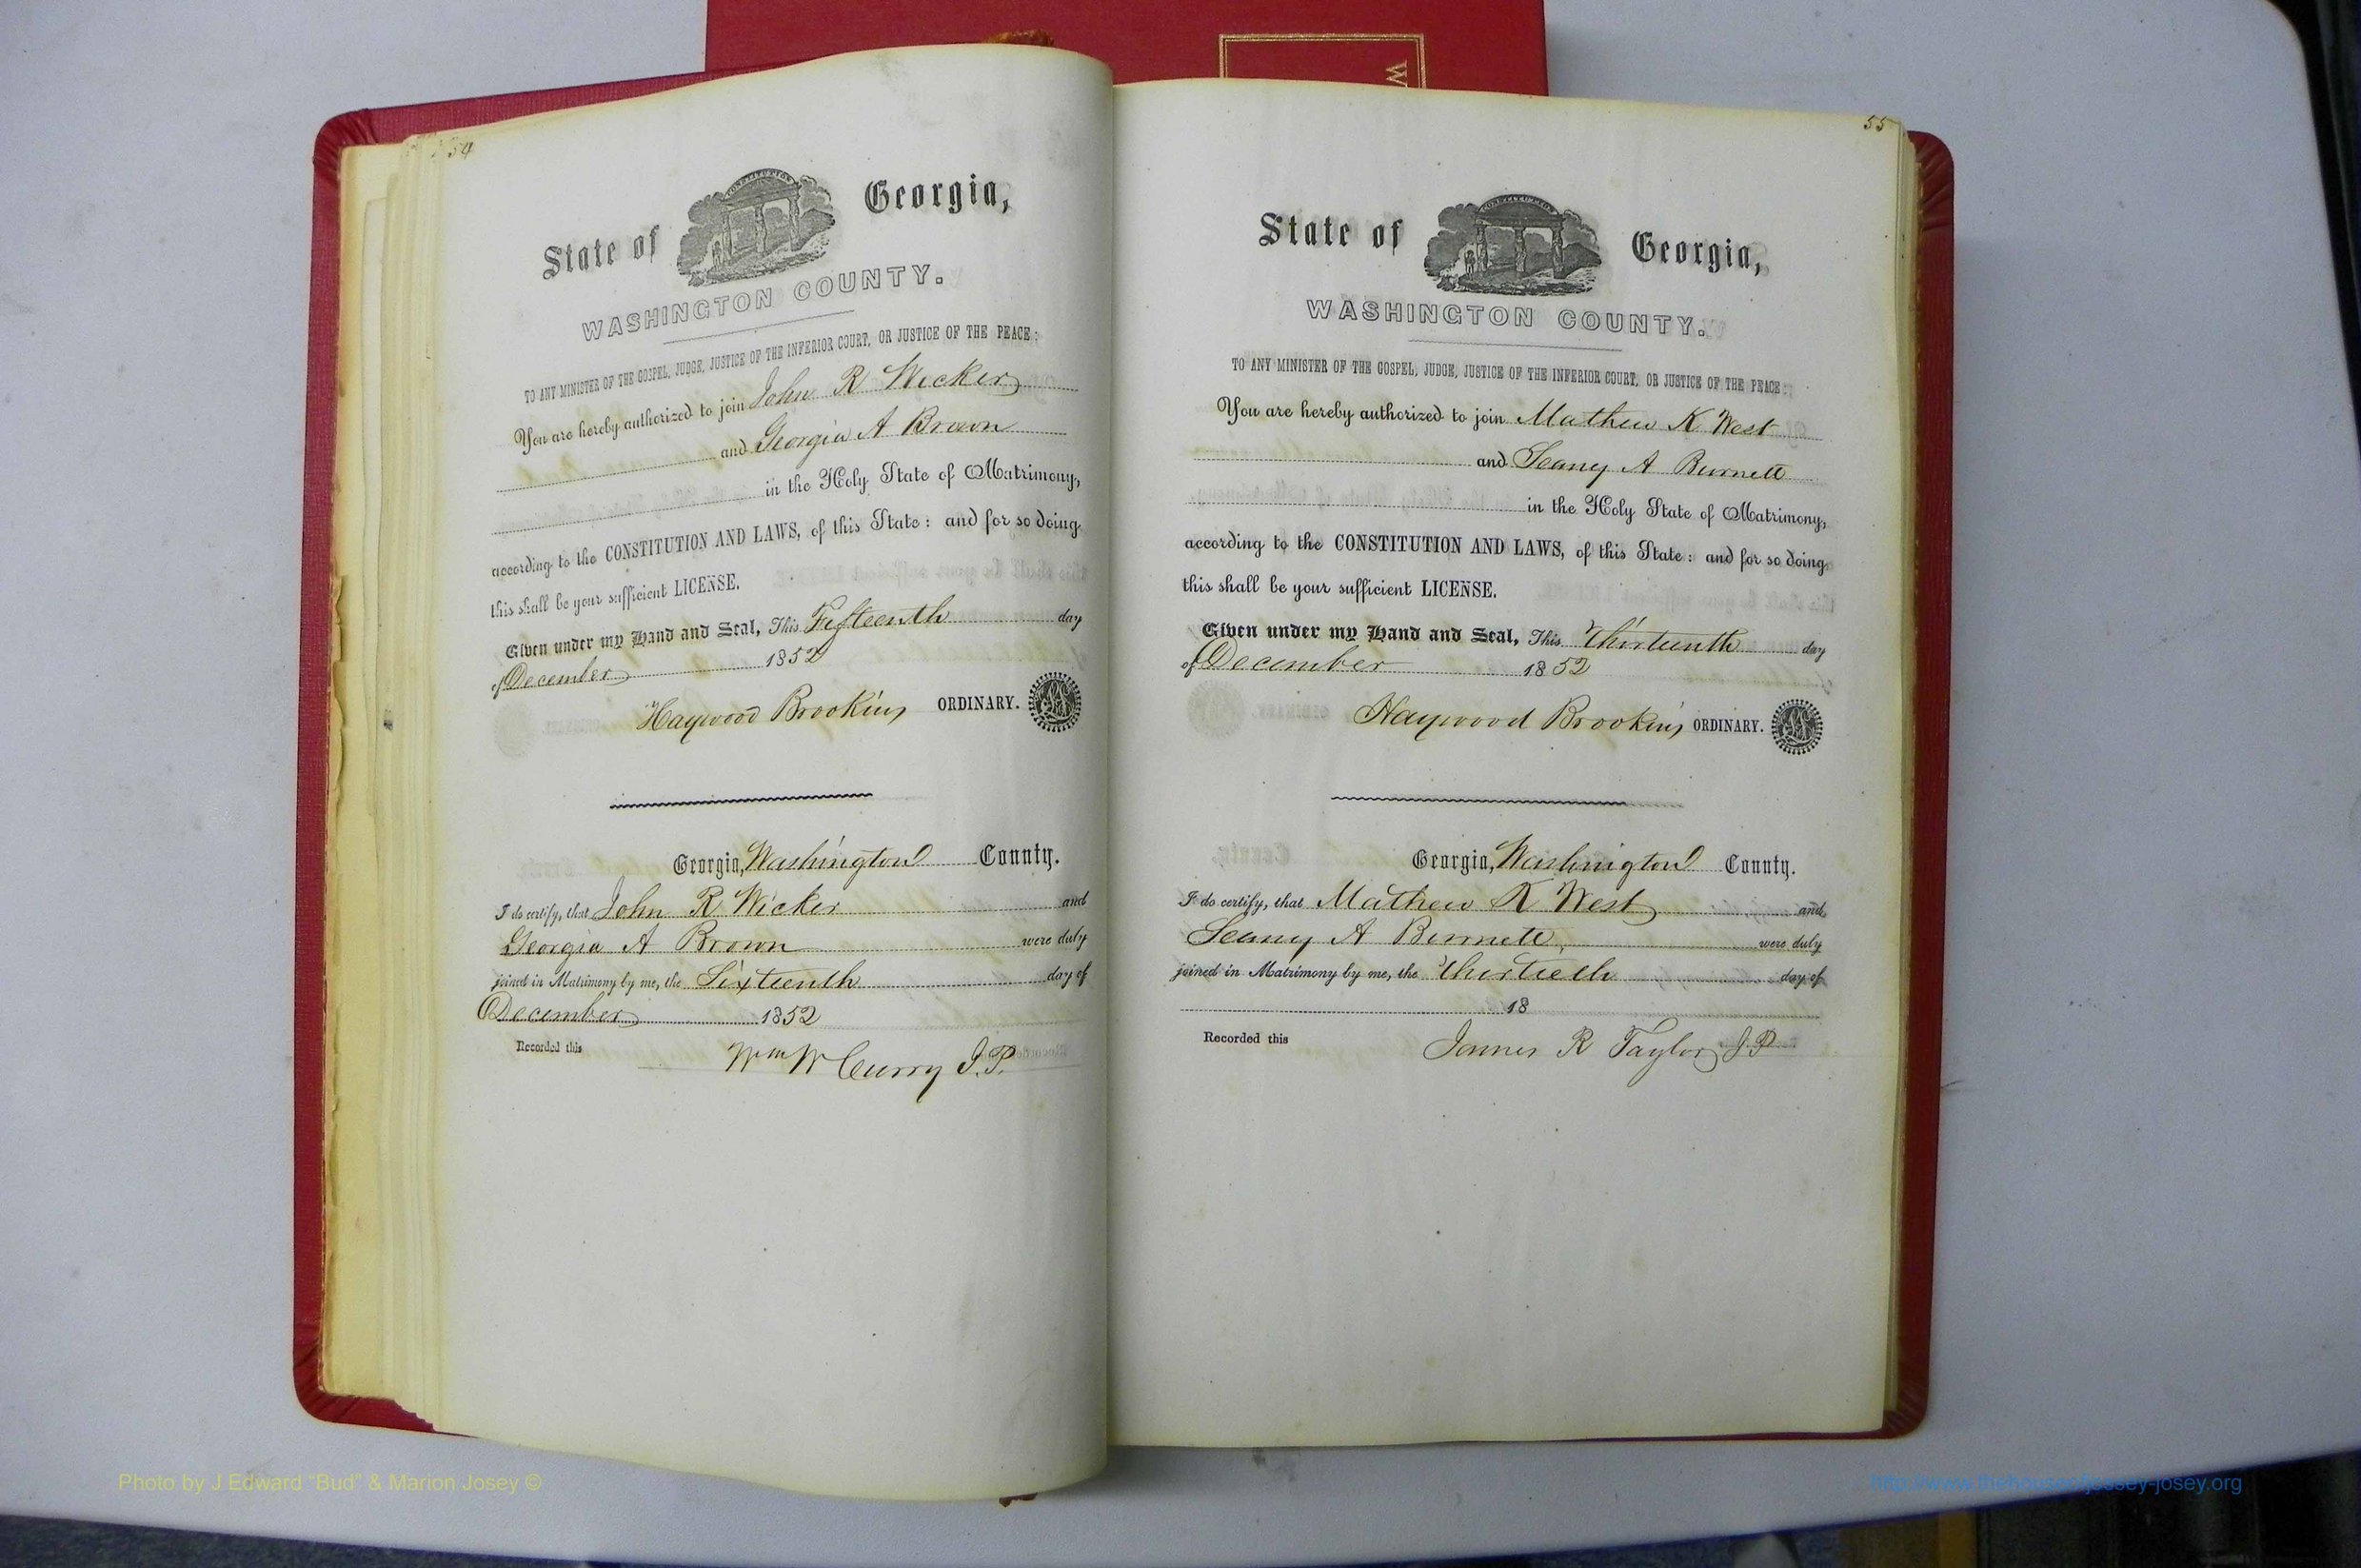 54
CONSTITUTION
State of Georgia,
WASHINGTON COUNTY.
TO ANY MINISTER OF THE GOSPEL, JUDGE, JUSTICE OF THE INFERIOR COURT, OR JUSTICE OF THE PEACE:
You are hereby authorized to join John R Wicker
and Georgia A Brown
in the Holy State of Matrimony,
according to the CONSTITUTION AND LAWS, of this State: and for so doing
this shall be your sufficient LICENSE.
Given under my Hand and Seal, This Fifteenth day
of December 1852
Haywood Brookins ORDINARY.
Georgia, Washington County.
I do certify, that John R Wicker and
Georgia A Brown were duly
joined in Matrimony by me, the Sixteenth day of
December 1852
Recorded this
Wm W Curry J.P.
55
State of Georgia,
WASHINGTON COUNTY.
TO ANY MINISTER OF THE GOSPEL, JUDGE, JUSTICE OF THE INFERIOR COURT, OR JUSTICE OF THE PEACE:
You are hereby authorized to join Mathew K West
and Seany A Burnett
in the Holy State of Matrimony,
according to the CONSTITUTION AND LAWS, of this State: and for so doing
this shall be your sufficient LICENSE.
Given under my Hand and Seal, This Thirteenth day
of December 1852
Haywood Brookins ORDINARY.
Georgia, Washington County.
I do certify, that Mathew K West and
Seany A Burnett were duly
joined in Matrimony by me, the Thirtieth day of
18
Recorded this
James R Taylor J.P.
W
Photo by J Edward “Bud” & Marion Josey ©